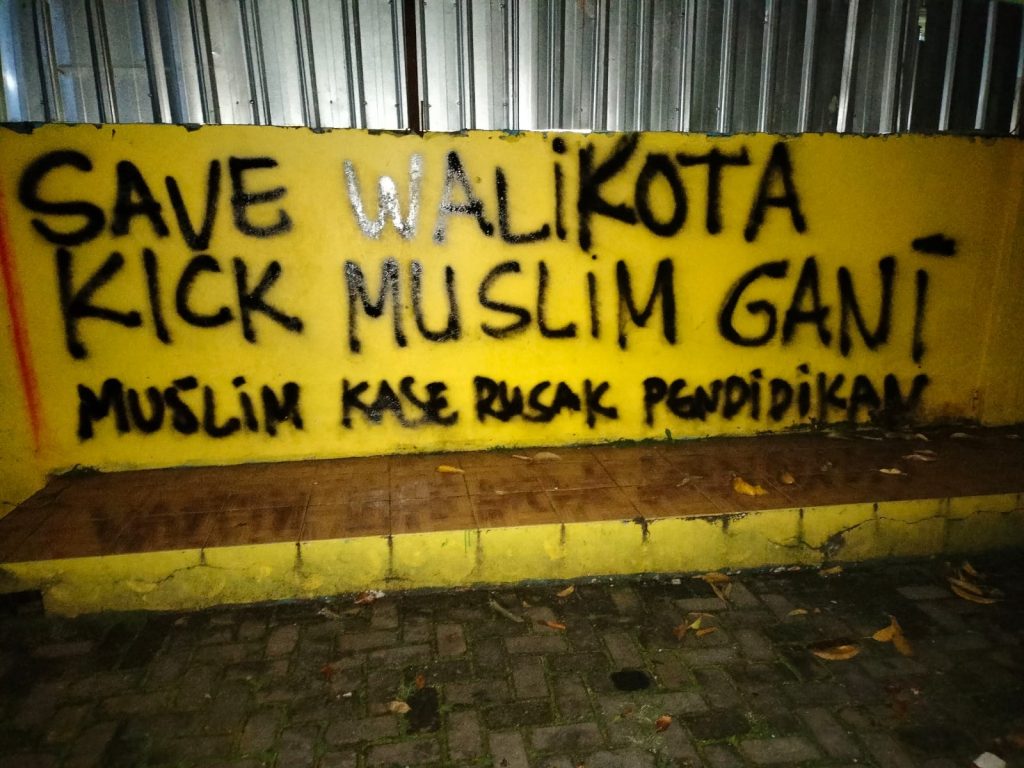 SAVE WALiKOTA
KICK MUSLiM GANi
MUSLiM KASE RUSAK PENDiDiKAN